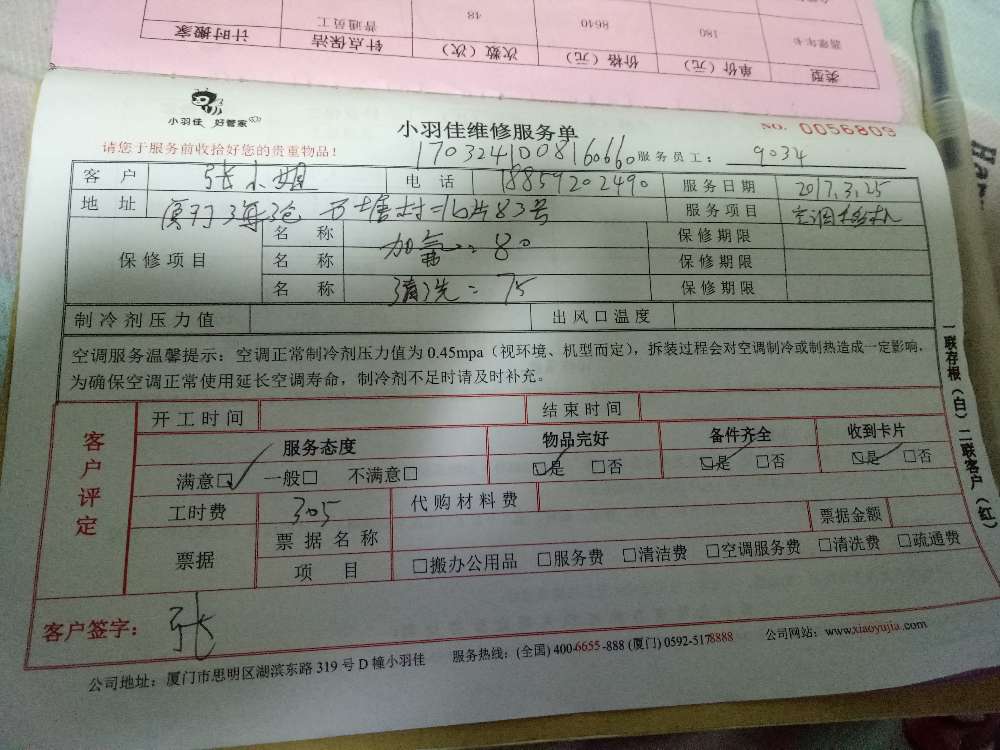 类型 单价（元） 价格（元） 次数（次） 针点保洁 计时搬家
180 8640 48 普通员工
小羽佳 好管家
小羽佳维修服务单
NO. 0056809
请您于服务前收拾好您的贵重物品！
1703241008160660 服务员工： 9034
客户 张小姐 电话 18859202490 服务日期 2017.3.25
地址 厦门海沧 服务项目 空调
保修项目 名称 加氟：80 保修期限
名称 保修期限
名称 清洗：75 保修期限
制冷剂压力值 出风口温度
空调服务温馨提示：空调正常制冷剂压力值为 0.45mpa（视环境、机型而定），拆装过程会对空调制冷或制热造成一定影响，
为确保空调正常使用延长空调寿命，制冷剂不足时请及时补充。
客户评定
开工时间 结束时间
服务态度 物品完好 备件齐全 收到卡片
满意□ 一般□ 不满意□ □是 □否 □是 □否 □是 □否
工时费 305 代购材料费
票据 票据名称 票据金额
项目 □搬办公用品 □服务费 □清洁费 □空调服务费 □清洗费 □疏通费
客户签字： 张
公司地址：厦门市思明区湖滨东路 319 号 D 幢小羽佳 服务热线：(全国) 400-6655-888 (厦门) 0592-5178888 公司网站：www.xiaoyujia.com
一联存根（白）二联客户（红）